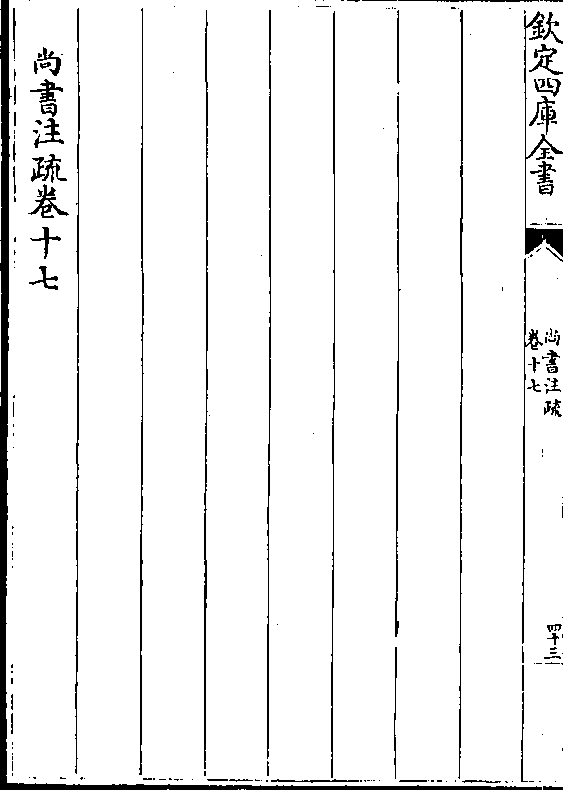 欽定四庫全書
尚書注疏
卷十七
四十三
尚書注疏卷十七